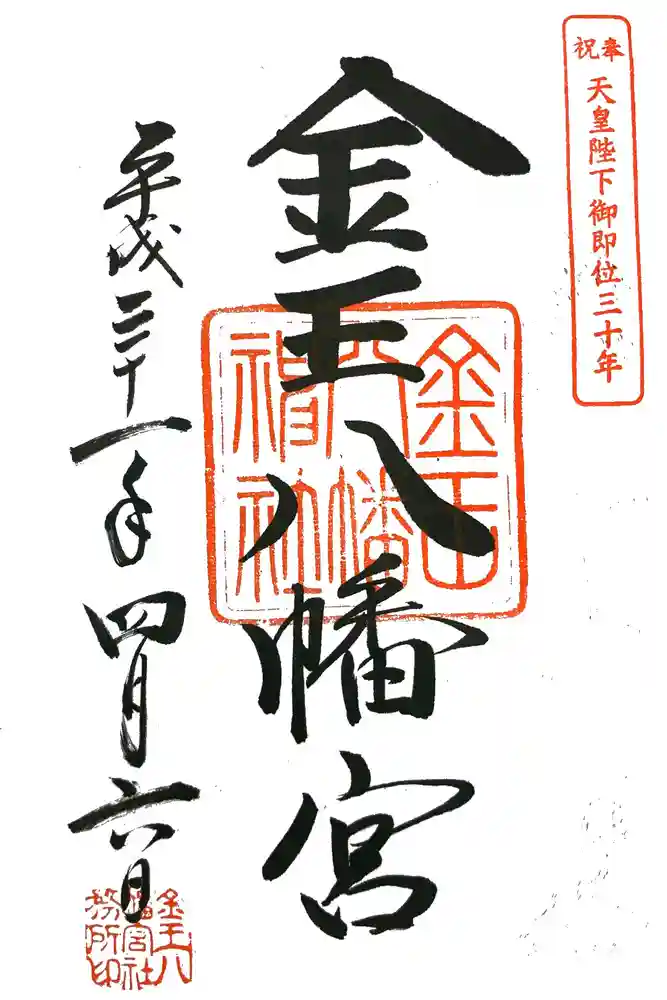 奉祝
天皇陛下御即位三十年
金王八幡宮
金王
八幡
神社
平成三十一年四月六日
金王八
幡宮社
務所印